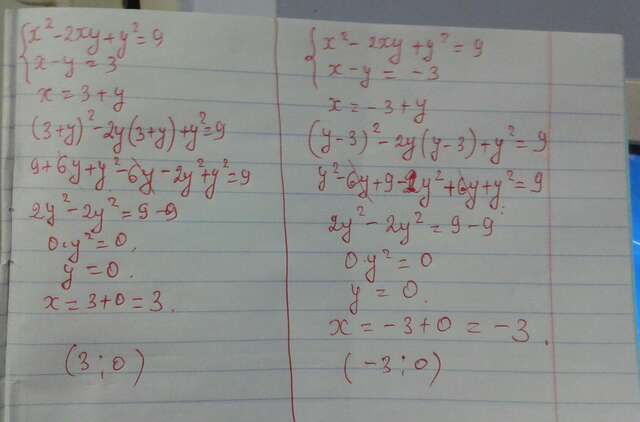 x² - 2xy + y² = 9
x - y = 3
x = 3 + y
(3+y)² - 2y(3+y) + y² = 9
9 + 6y + y² - 6y - 2y² + y² = 9
2y² - 2y² = 9 - 9
0·y² = 0.
y = 0.
x = 3 + 0 = 3.
(3 ; 0)
x² - 2xy + y² = 9
x - y = -3
x = -3 + y
(y-3)² - 2y(y-3) + y² = 9
y² - 6y + 9 - 2y² + 6y + y² = 9
2y² - 2y² = 9 - 9
0·y² = 0
y = 0.
x = -3 + 0 = -3.
(-3 ; 0)